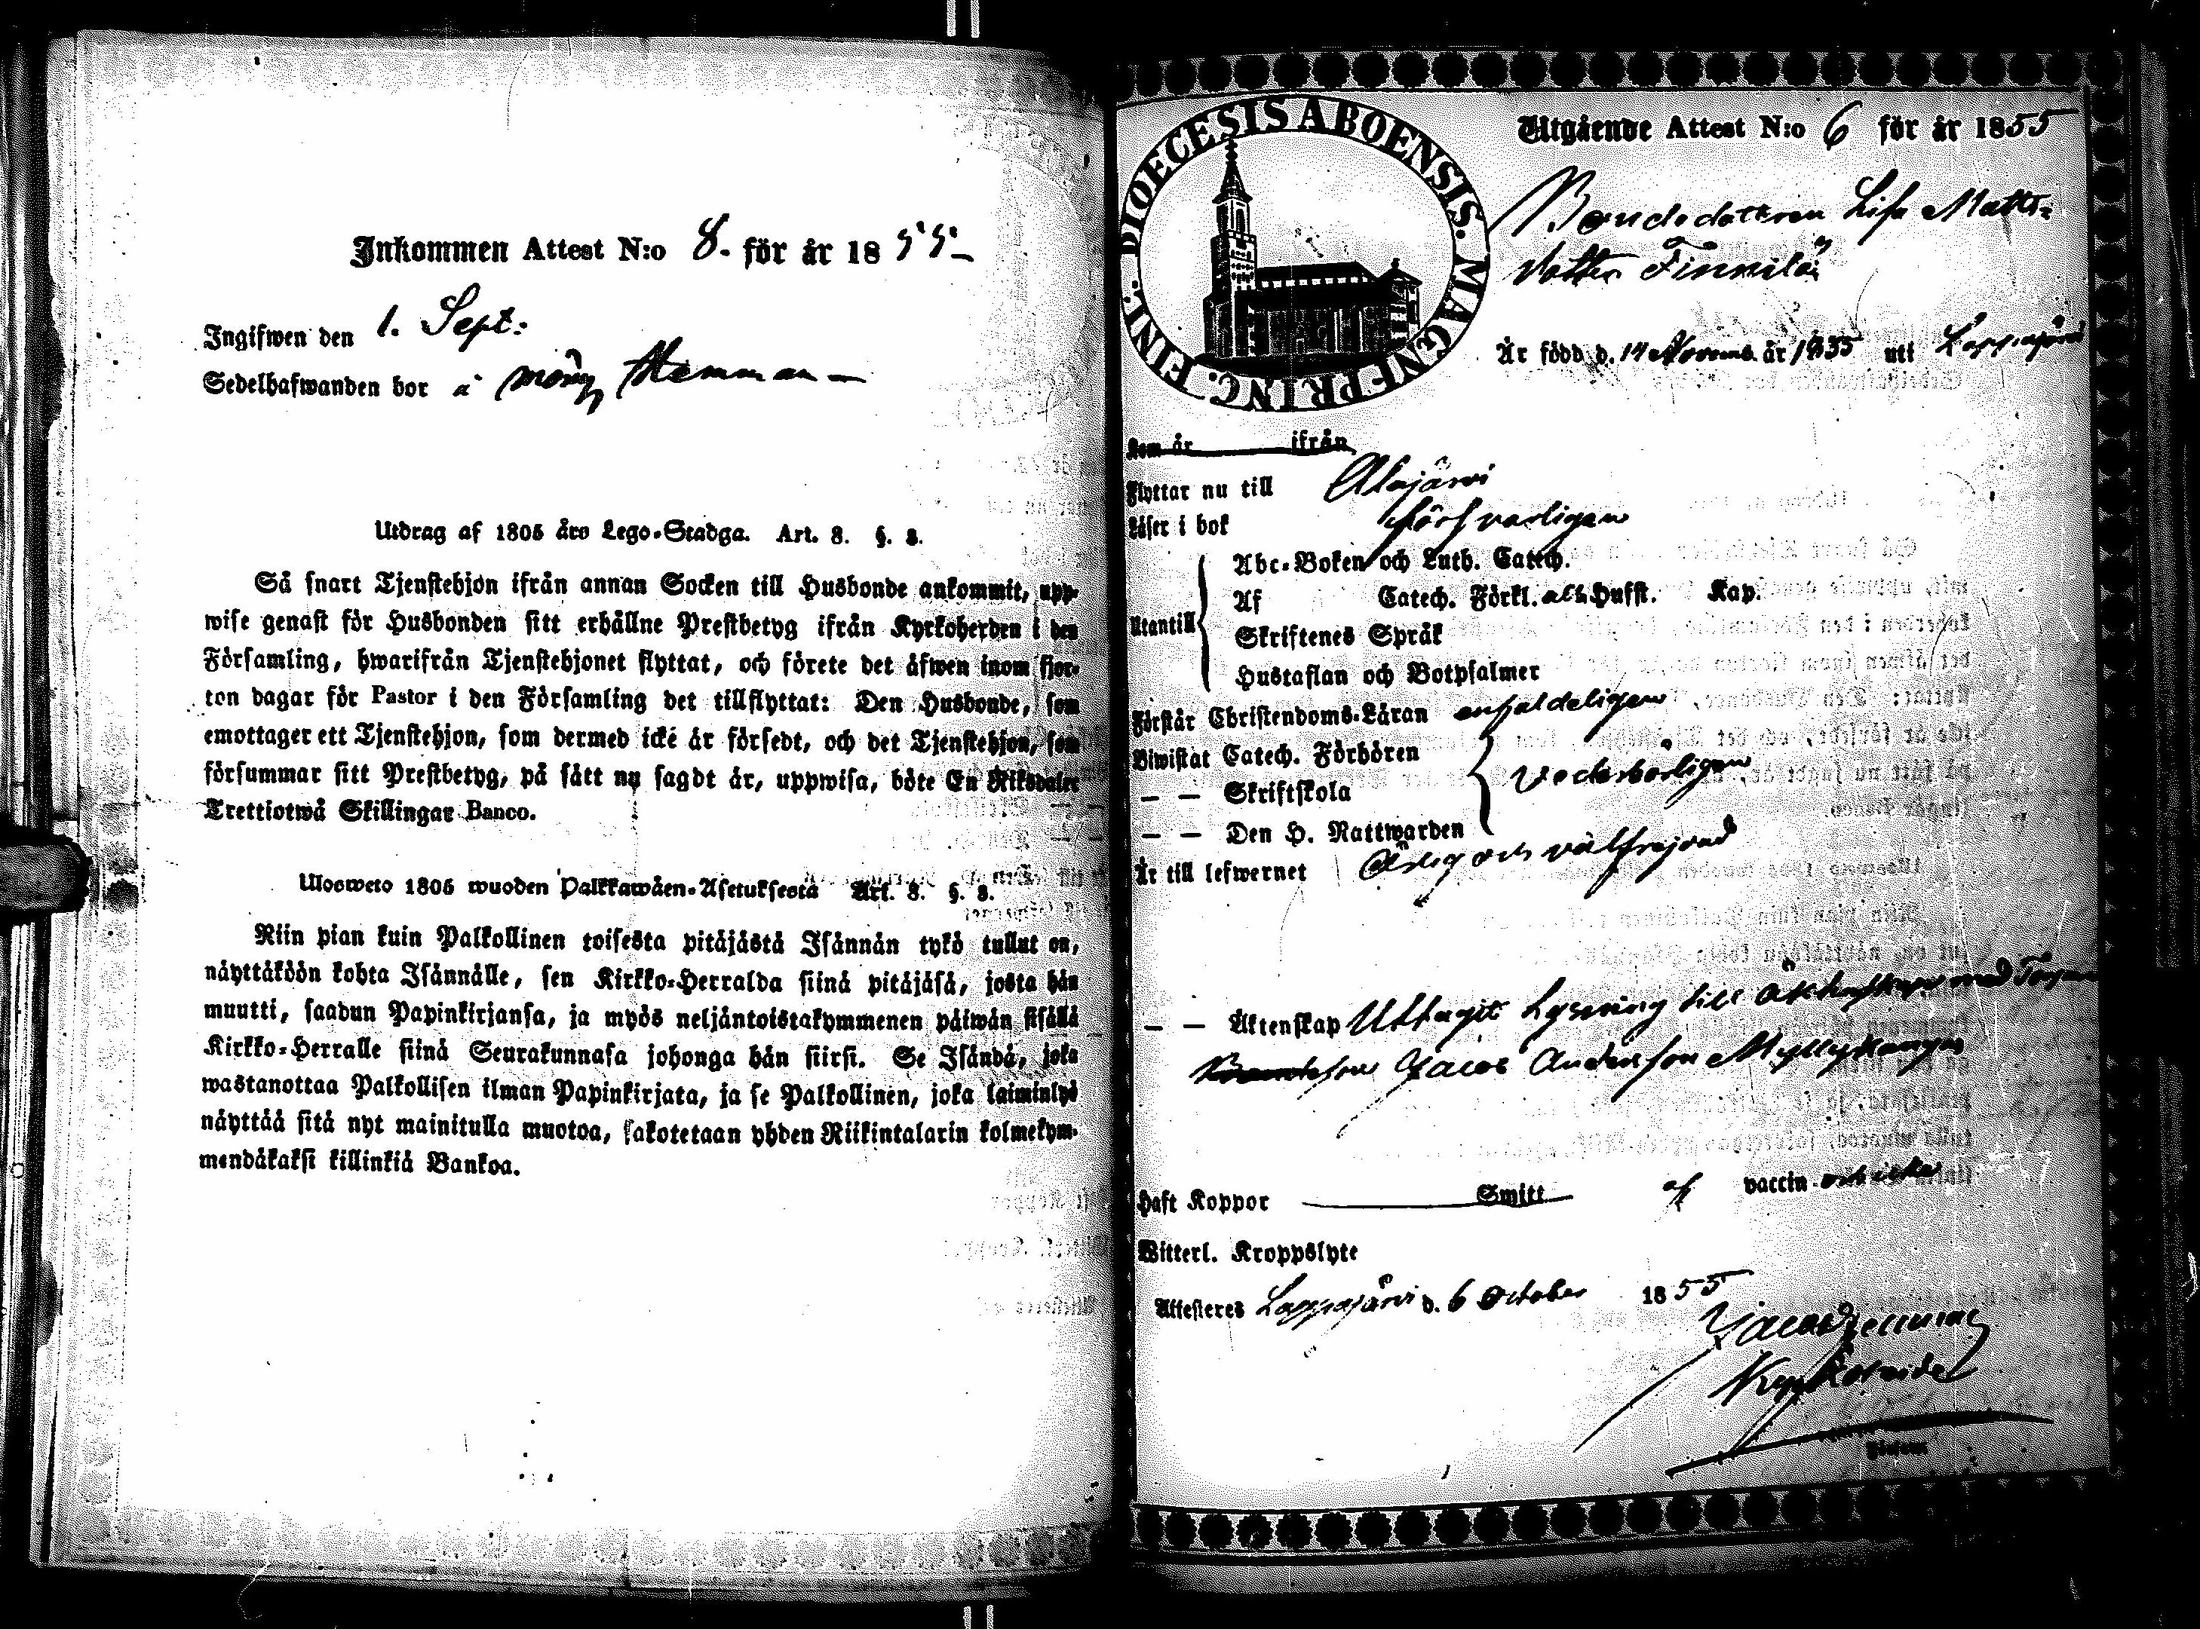 Inkommen Attest N:o 8. för år 1855
Ingifwen den 1. Sept:
Sedelhafwanden bor å Hemman
Utdrag af 1805 års Lego-Stadga. Art. 8. §. 8.
Så snart Tjenstehjon ifrån annan Socken till Husbonde ankommit, upp-
wise genast för Husbonden sitt erhållne Prestbetyg ifrån Kyrkoherden i den
Församling, hwarifrån Tjenstehjonet flyttat, och förete det äfwen inom fjor-
ton dagar för Pastor i den Församling det tillflyttat: Den Husbonde, som
emottager ett Tjenstehjon, som dermed icke är försedt, och det Tjenstehjon, som
försummar sitt Prestbetyg, på sätt nu sagdt är, uppwisa, böte En Riksdaler
Trettiotwå Skillingar Banco.
Ulosweto 1805 wuoden Palkkawäen-Asetuksesta Art. 8. §. 8.
Niin pian kuin Palkollinen toisesta pitäjästä Isännän tykö tullut on,
näyttäköön kohta Isännälle, sen Kirkko-Herralda siinä pitäjäsä, josta hän
muutti, saadun Papinkirjansa, ja myös neljäntoistakymmenen päiwän sisällä
Kirkko-Herralle siinä Seurakunnasa johonga hän siirsi. Se Isändä, joka
wastanottaa Palkollisen ilman Papinkirjata, ja se Palkollinen, joka laiminlyö
näyttää sitä nyt mainitulla muotoa, sakotetaan yhden Riikintalarin kolmekym-
mendäkaksi killinkiä Bankoa.
DIOECESIS ABOENSIS. MAGNI PRINC. FINL.
Utgående Attest N:o 6 för år 1855
Bondedottren Lisa Matts-
dotter Finnilä
Är född d. 14 Novemb. år 1835 uti Lappajärvi
Kom år ifrån
Flyttar nu till Alajärvi
Läser i bok försvarligen
Utantill
Abc-Boken och Luth. Catech.
Af Catech. Förkl. Husft. Kap.
Skriftenes Språk
Hustaflan och Botpsalmer
Förstår Christendoms-Läran enfaldeligen
Biwistat Catech. Förhören
— — Skriftskola vederbörligen
— — Den H. Nattwarden
Är till lefwernet Ärlig och välfrejdad
— — Äktenskap Uttagit Lysning till Äktenskap med
Jacob Andersson Myllykangas
Haft Koppor Smitt af vaccin
Witterl. Kroppslyte
Attesteras Lappajärvi d. 6 October 1855